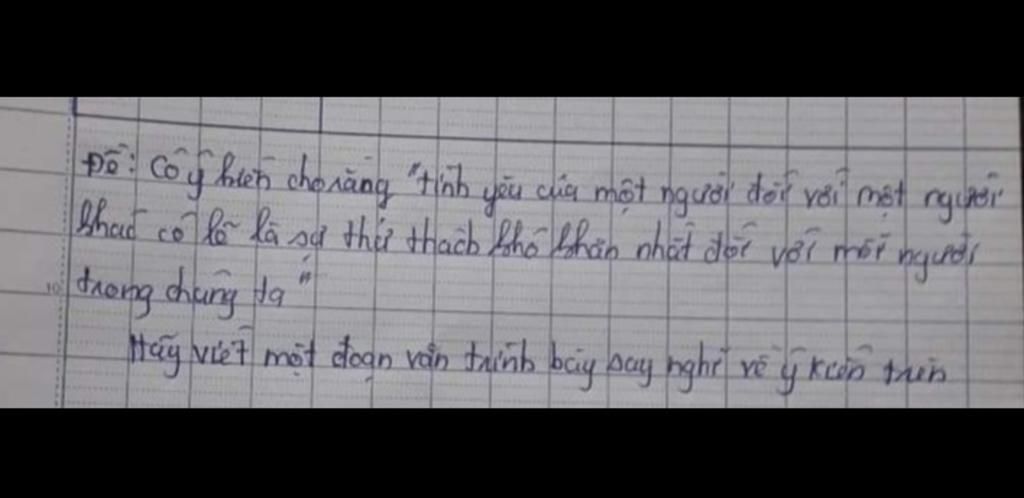 Đề: Có ý kiến cho rằng "tình yêu của một người đối với một người
khác có lẽ là sự thử thách khó khăn nhất đối với mỗi người
trong chúng ta"
Hãy viết một đoạn văn trình bày suy nghĩ về ý kiến trên